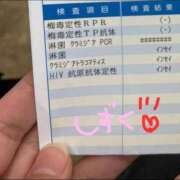 検査項目 検査結果
梅毒定性RPR (-)
梅毒定性TP抗体 (-)
淋菌 クラミジア PCR ********
淋菌 インセイ
クラミジアトラコマティス インセイ
HIV 抗原抗体定性 (-)
しずく